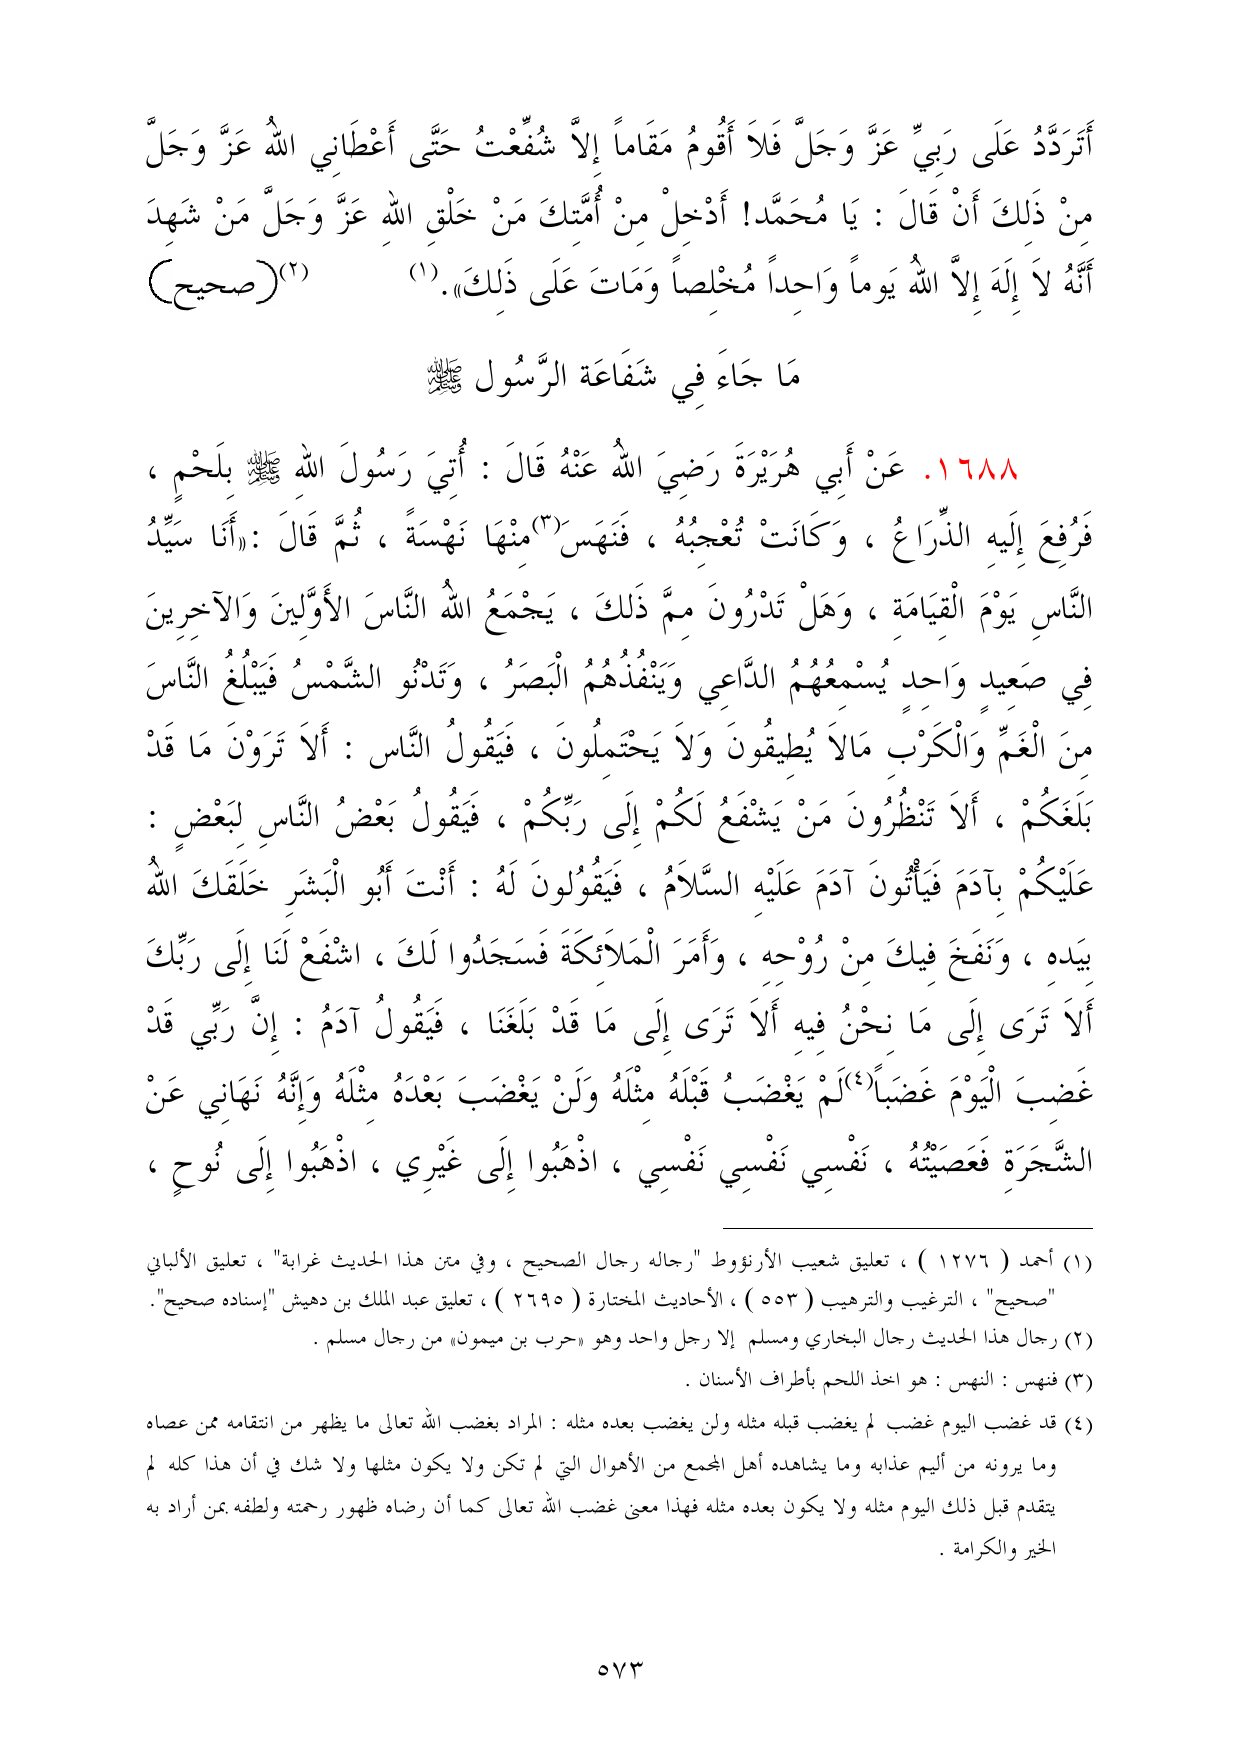 أَتَرَدَّدُ عَلَى رَبِيِّ عَزَّ وَجَلَّ فَلاَ أَقُومُ مَقَاماً إِلاَّ شُفِّعْتُ حَتَّى أَعْطَانِي اللهُ عَزَّ وَجَلَّ
مِنْ ذَلِكَ أَنْ قَالَ : يَا مُحَمَّد! أَدْخِلْ مِنْ أُمَّتِكَ مَنْ خَلْقِ اللهِ عَزَّ وَجَلَّ مَنْ شَهِدَ
أَنَّهُ لاَ إِلَهَ إِلاَّ اللهُ يَوماً وَاحِداً مُخْلِصاً وَمَاتَ عَلَى ذَلِكَ».(١) (٢)(صحيح)
مَا جَاءَ فِي شَفَاعَة الرَّسُول ﷺ
١٦٨٨. عَنْ أَبِي هُرَيْرَةَ رَضِيَ اللهُ عَنْهُ قَالَ : أُتِيَ رَسُولَ اللهِ ﷺ بِلَحْمٍ ،
فَرُفِعَ إِلَيهِ الذِّرَاعُ ، وَكَانَتْ تُعْجِبُهُ ، فَنَهَسَ(٣)مِنْهَا نَهْسَةً ، ثُمَّ قَالَ :«أَنَا سَيِّدُ
النَّاسِ يَوْمَ الْقِيَامَةِ ، وَهَلْ تَدْرُونَ مِمَّ ذَلِكَ ، يَجْمَعُ اللهُ النَّاسَ الأَوَّلِينَ وَالآخِرِينَ
فِي صَعِيدٍ وَاحِدٍ يُسْمِعُهُمُ الدَّاعِي وَيَنْفُذُهُمُ الْبَصَرُ ، وَتَدْنُو الشَّمْسُ فَيَبْلُغُ النَّاسَ
مِنَ الْغَمِّ وَالْكَرْبِ مَالاَ يُطِيقُونَ وَلاَ يَحْتَمِلُونَ ، فَيَقُولُ النَّاس : أَلاَ تَرَوْنَ مَا قَدْ
بَلَغَكُمْ ، أَلاَ تَنْظُرُونَ مَنْ يَشْفَعُ لَكُمْ إِلَى رَبِّكُمْ ، فَيَقُولُ بَعْضُ النَّاسِ لِبَعْضٍ :
عَلَيْكُمْ بِآدَمَ فَيَأْتُونَ آدَمَ عَلَيْهِ السَّلاَمُ ، فَيَقُوُلونَ لَهُ : أَنْتَ أَبُو الْبَشَرِ خَلَقَكَ اللهُ
بِيَدهِ ، وَنَفَخَ فِيكَ مِنْ رُوْحِهِ ، وَأَمَرَ الْمَلاَئِكَةَ فَسَجَدُوا لَكَ ، اشْفَعْ لَنَا إِلَى رَبِّكَ
أَلاَ تَرَى إِلَى مَا نِحْنُ فِيهِ أَلاَ تَرَى إِلَى مَا قَدْ بَلَغَنَا ، فَيَقُولُ آدَمُ : إِنَّ رَبِّي قَدْ
غَضِبَ الْيَوْمَ غَضَبَاً(٤)لَمْ يَغْضَبُ قَبْلَهُ مِثْلَهُ وَلَنْ يَغْضَبَ بَعْدَهُ مِثْلَهُ وَإِنَّهُ نَهَانِي عَنْ
الشَّجَرَةِ فَعَصَيْتُهُ ، نَفْسِي نَفْسِي نَفْسِي ، اذْهَبُوا إِلَى غَيْرِي ، اذْهَبُوا إِلَى نُوحٍ ،
(١) أحمد ( ١٢٧٦ ) ، تعليق شعيب الأرنؤوط "رجاله رجال الصحيح ، وفي متن هذا الحديث غرابة" ، تعليق الألباني
"صحيح" ، الترغيب والترهيب ( ٥٥٣ ) ، الأحاديث المختارة ( ٢٦٩٥ ) ، تعليق عبد الملك بن دهيش "إسناده صحيح".
(٢) رجال هذا الحديث رجال البخاري ومسلم إلا رجل واحد وهو «حرب بن ميمون» من رجال مسلم .
(٣) فنهس : النهس : هو اخذ اللحم بأطراف الأسنان .
(٤) قد غضب اليوم غضب لم يغضب قبله مثله ولن يغضب بعده مثله : المراد بغضب الله تعالى ما يظهر من انتقامه ممن عصاه
وما يرونه من أليم عذابه وما يشاهده أهل المجمع من الأهوال التي لم تكن ولا يكون مثلها ولا شك في أن هذا كله لم
يتقدم قبل ذلك اليوم مثله ولا يكون بعده مثله فهذا معنى غضب الله تعالى كما أن رضاه ظهور رحمته ولطفه بمن أراد به
الخير والكرامة .
٥٧٣